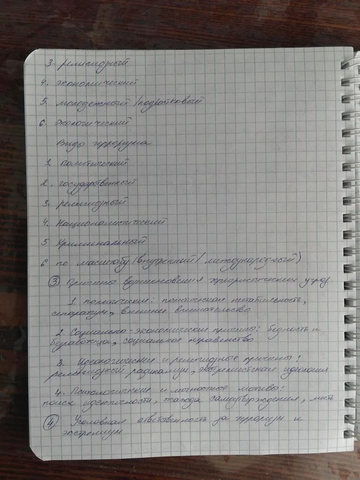 3. религиозный
4. экономический
5. молодежный / подростковый
6. Экологический
Виды терроризма
1. Политический
2. государственный
3. религиозный
4. Националистический
5 Криминальный
6 по масштабу (внутренний / международный)
③ Причины возникновения террористических угроз
1 политические: политическая нестабильность,
сепаратизм, внешнее вмешательство
2 Социально-экономические причины: бедность и
безработица, социальное неравенство
3. Идеологические и религиозные причины:
религиозный радикализм, экстремистская идеология
4. Психологические и личностные мотивы:
поиск идентичности, жажда самоутверждения, месть
④ Уголовная ответственность за терроризм и
экстремизм